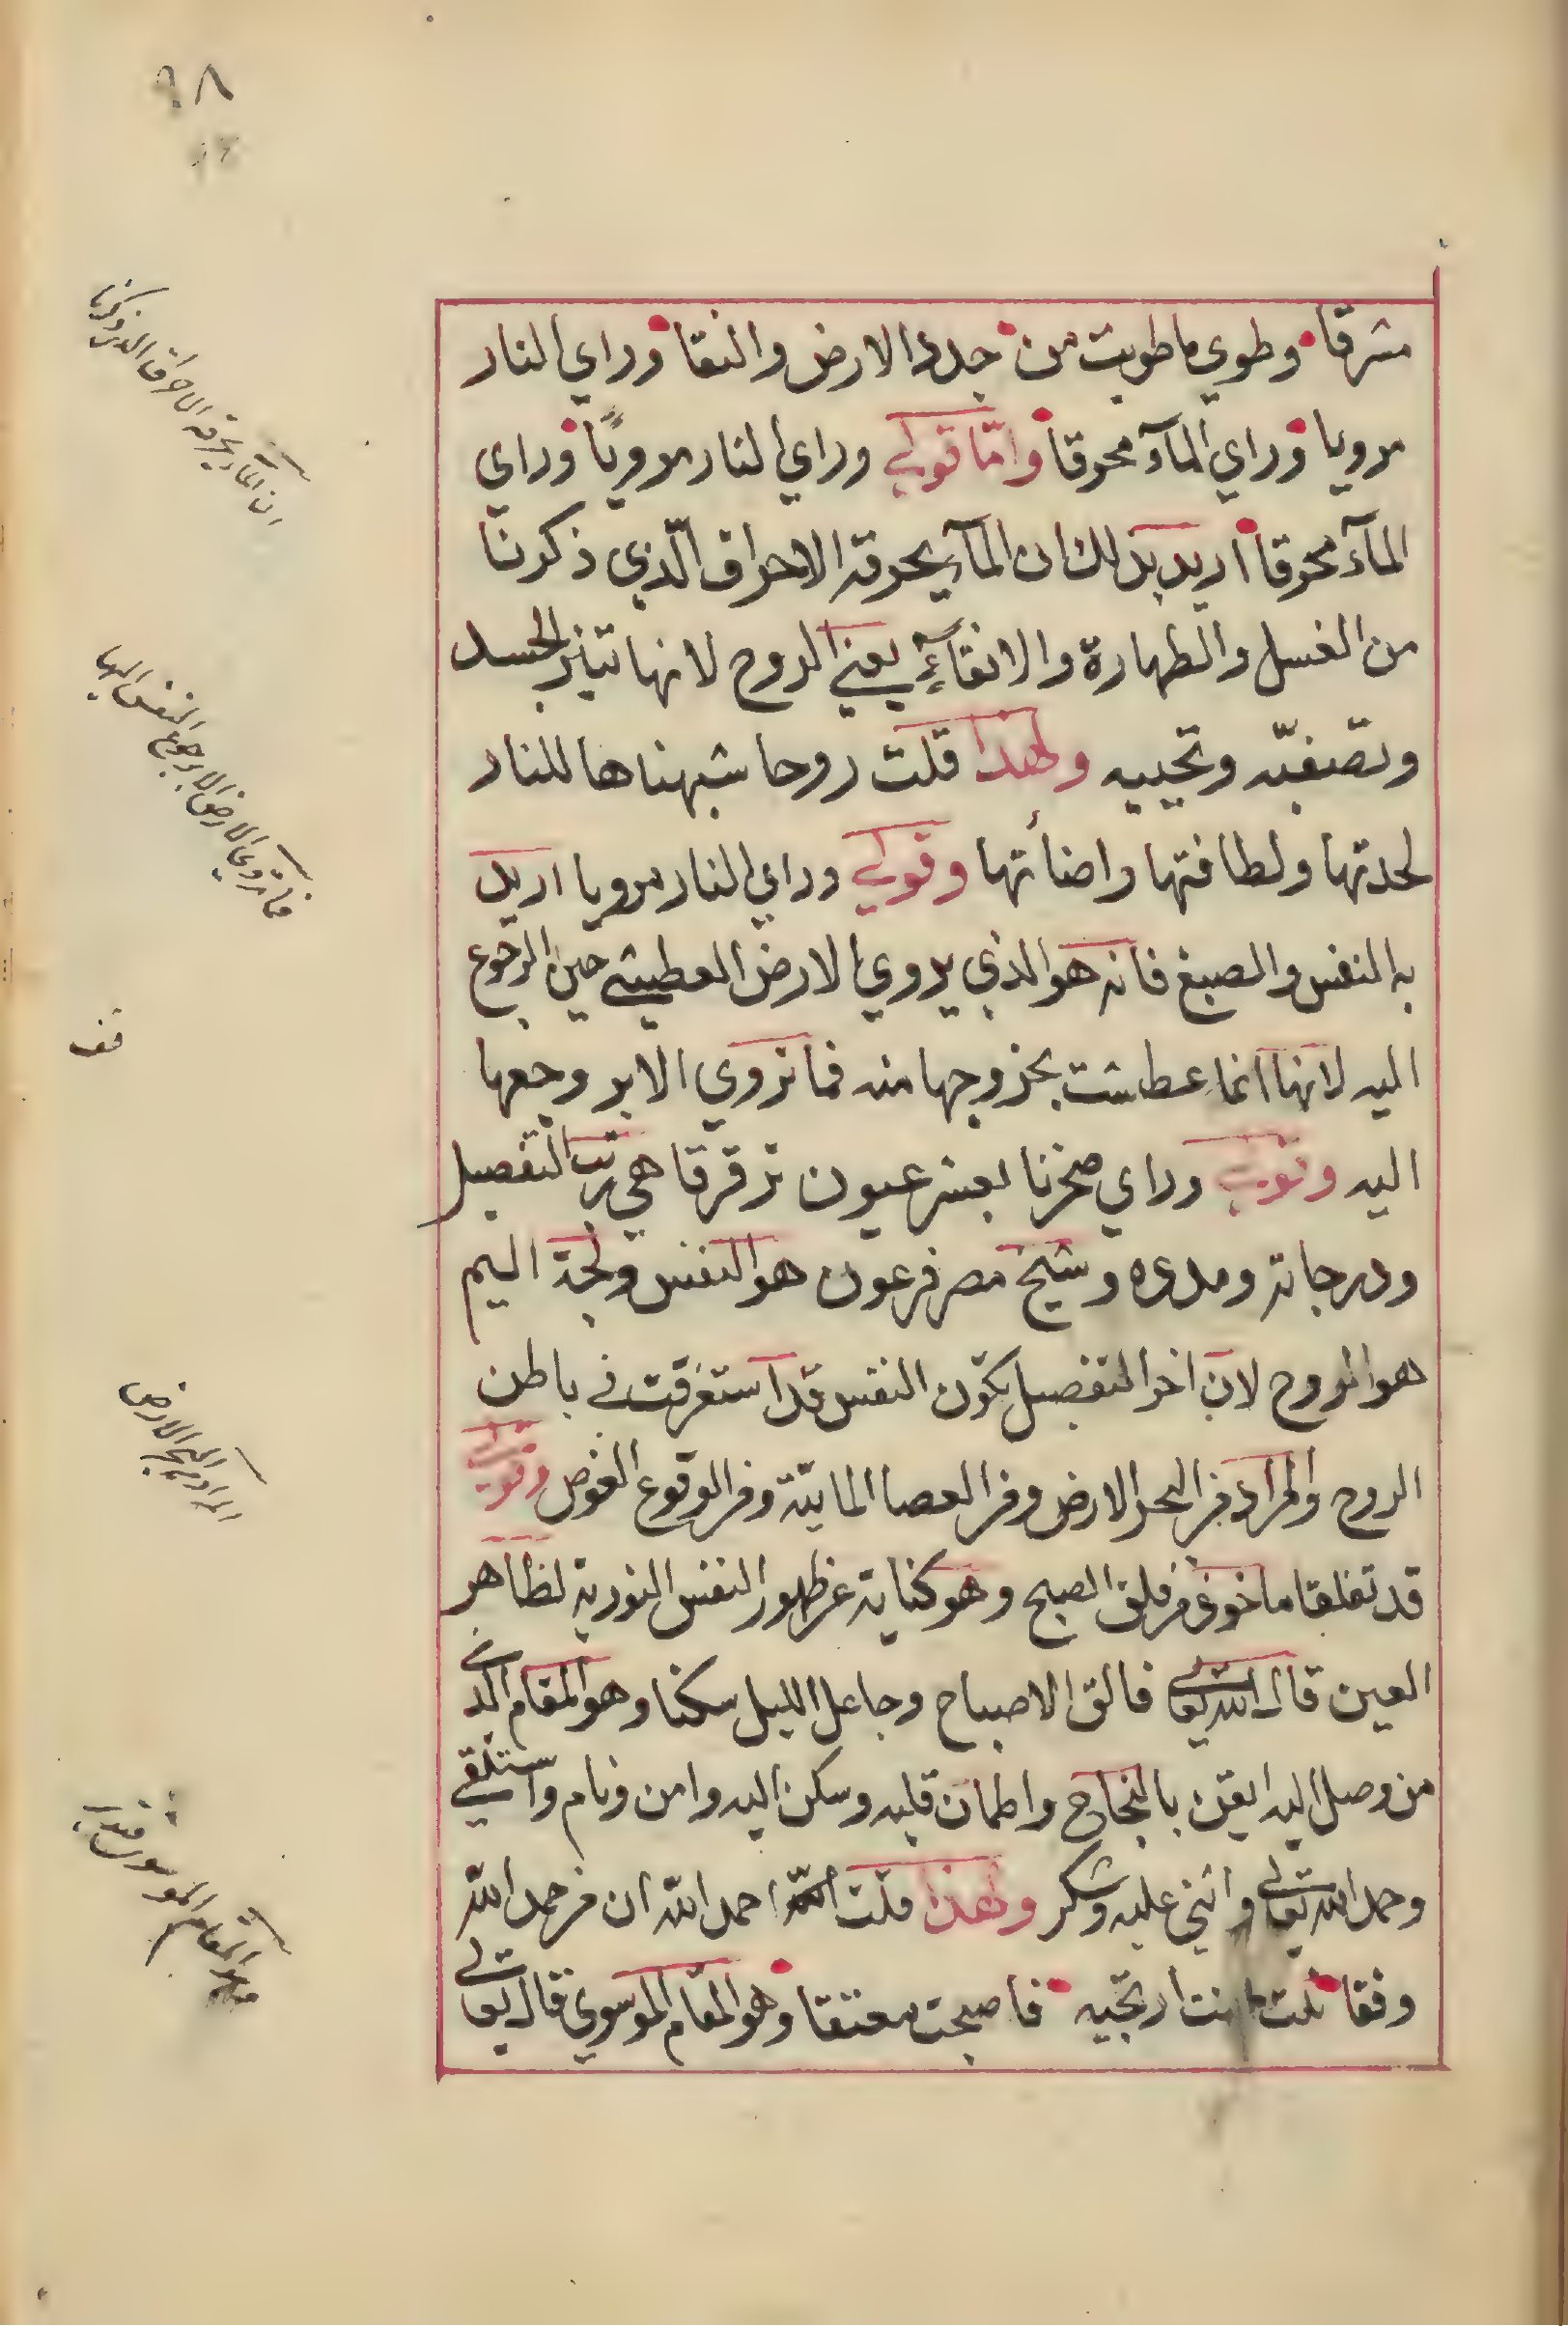 ٩٨
مشرقا وطوي ما طويت من جدد الارض والنقا وراي النار
مرويا وراي المآء محرقا وامّا قولي وراي النار مرويًا وراي
المآء محرقا اريد بذلك ان المآء يحرقه الاحراق الّذي ذكرنا
من الغسل والطهارة والانقآء يعني الروح لانها تنير الجسد
وتصفيّه وتحييه ولهذا قلت روحا شبهناها للنار
لحدتها ولطافتها واضأتها وقولي وراي النار مرويا اريد
به النفس والصبغ فانه هو الذي يروي الارض العطيشى حين الرجوع
اليه لانها انما عطشت بخروجها منه فما تروي الا برجوعها
اليه وقولي وراي صخرنا بعشر عيون ترقرقا هي رتب التفصيل
ودرجاته ومدده وشيخ مصر فرعون هو النفس ولجة اليم
هو الروح لان اخر التفصيل تكون النفس قد استغرقت في باطن
الروح والمراد من البحر الارض ومن العصا المايّة ومن الوقوع الغوص وقولي
قد تفلقا ماخوذ من فلق الصبح وهو كناية عن ظهور النفس النورية لظاهر
العين قال الله تعالى فالق الاصباح وجاعل الليل سكنا وهو المقام الذي
من وصل اليه ايقن بالنجاح واطمان قلبه وسكن اليه وامن ونام واستلقي
وحمد الله تعالى واثني عليه وشكر ولهذا قلت احمد الله ان من حمد الله
وفقا نلت ما كنت ارتجيه فاصبحت معتقا وهو المقام الموسوي قال تعالى
ان المآء يحرقه الاحراق الذي ذكرنا
فما تروي الارض الا برجوع النفس اليها
قف
المراد من البحر الارض
هو المقام الموسوي فتدبر